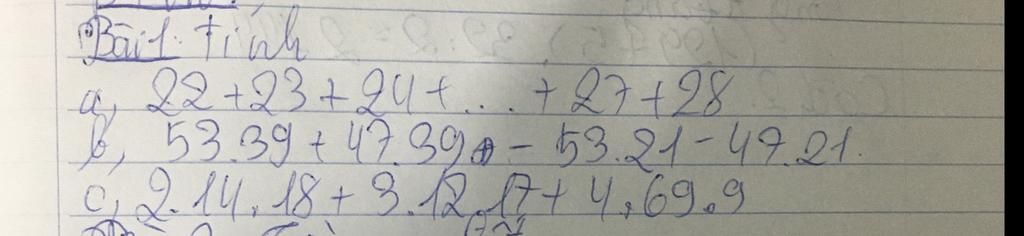 Bài 1: Tính
a, 22 + 23 + 24 + ... + 27 + 28
b, 53.39 + 47.39 - 53.21 - 47.21.
c, 2.14.18 + 3.12.17 + 4.69.9